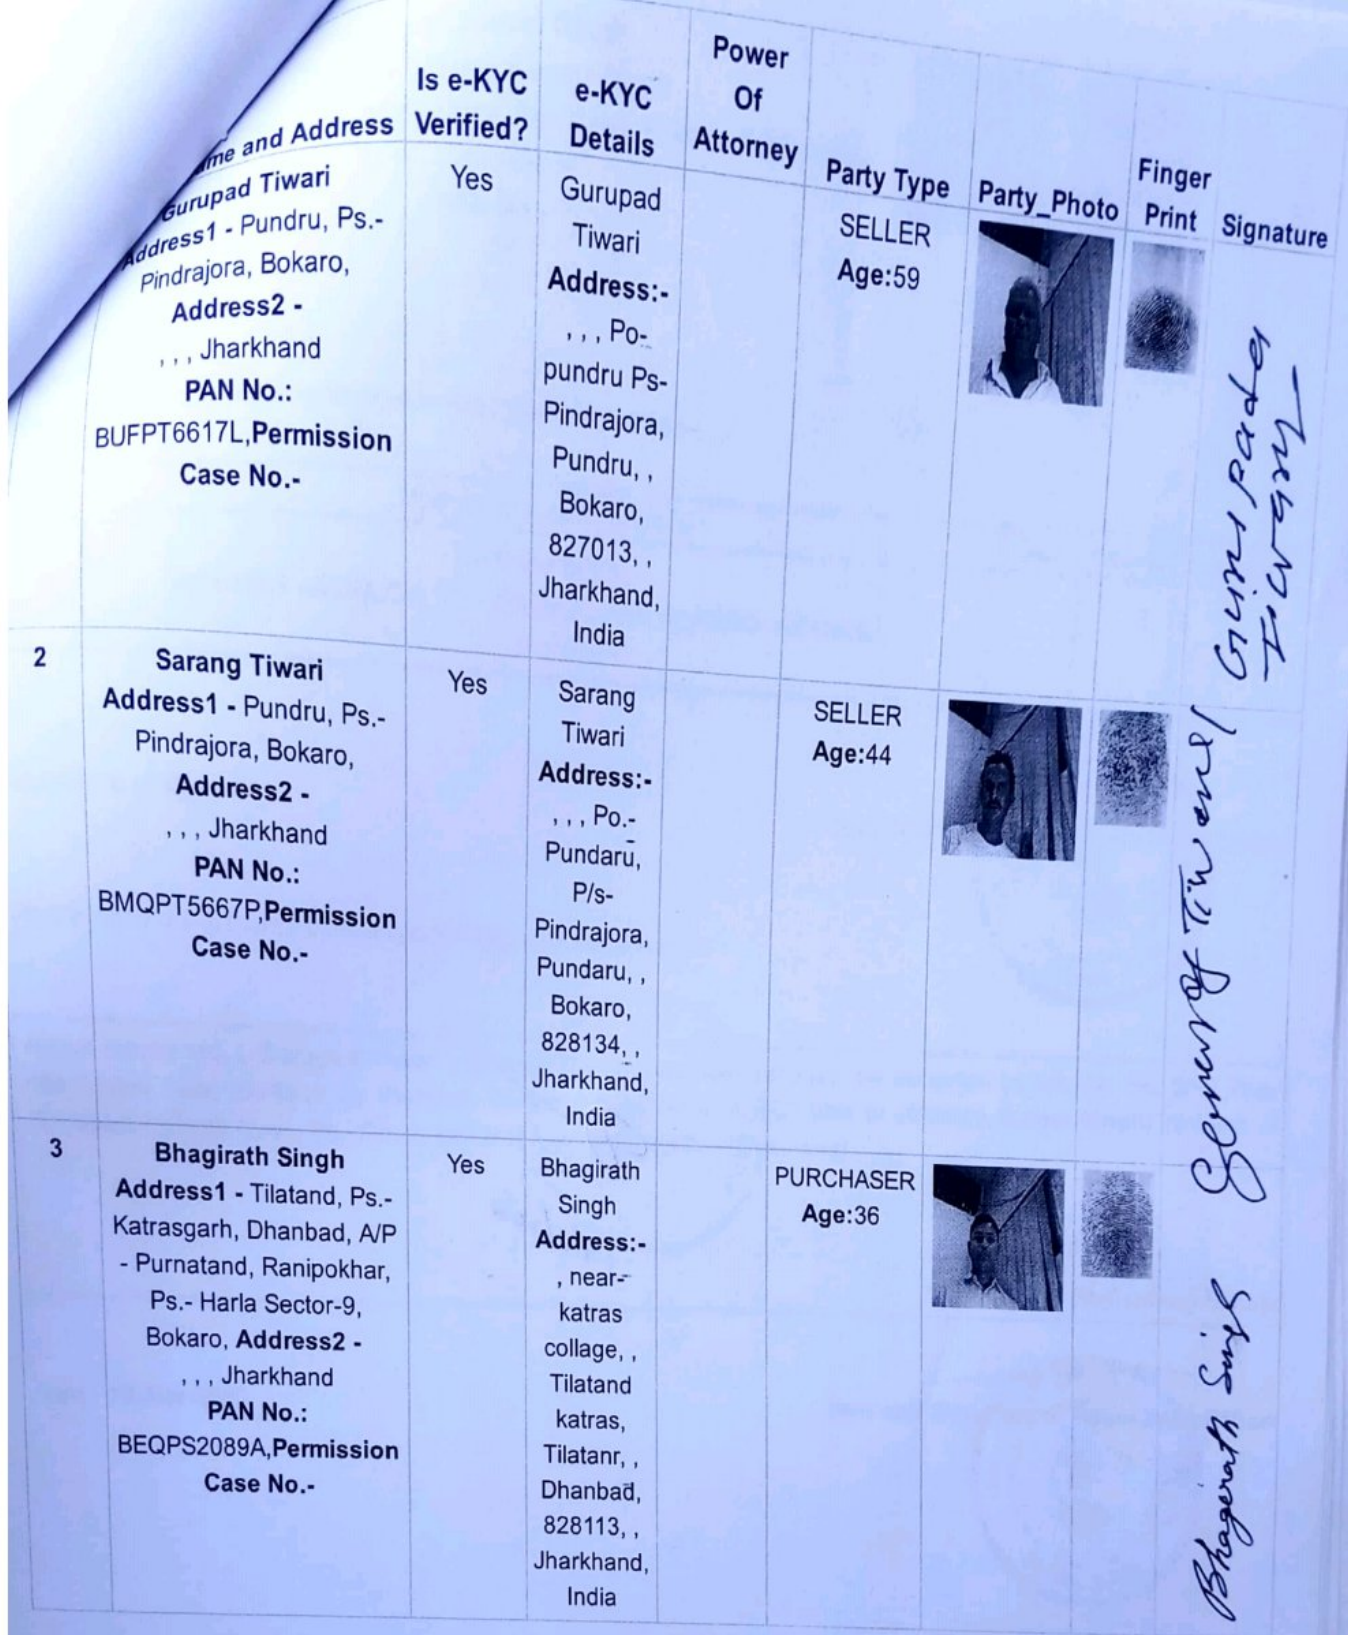 me and Address
Is e-KYC
Verified?
e-KYC
Details
Power
Of
Attorney
Party Type
Party_Photo
Finger
Print
Signature
Gurupad Tiwari
Address1 - Pundru, Ps.-
Pindrajora, Bokaro,
Address2 -
, , , Jharkhand
PAN No.:
BUFPT6617L,Permission
Case No.-
Yes
Gurupad
Tiwari
Address:-
, , , Po-
pundru Ps-
Pindrajora,
Pundru, ,
Bokaro,
827013, ,
Jharkhand,
India
SELLER
Age:59
Guru Pada
Tiwari
2
Sarang Tiwari
Address1 - Pundru, Ps.-
Pindrajora, Bokaro,
Address2 -
, , , Jharkhand
PAN No.:
BMQPT5667P,Permission
Case No.-
Yes
Sarang
Tiwari
Address:-
, , , Po.-
Pundaru,
P/s-
Pindrajora,
Pundaru, ,
Bokaro,
828134, ,
Jharkhand,
India
SELLER
Age:44
Tiwari
3
Bhagirath Singh
Address1 - Tilatand, Ps.-
Katrasgarh, Dhanbad, A/P
- Purnatand, Ranipokhar,
Ps.- Harla Sector-9,
Bokaro, Address2 -
, , , Jharkhand
PAN No.:
BEQPS2089A,Permission
Case No.-
Yes
Bhagirath
Singh
Address:-
, near-
katras
collage, ,
Tilatand
katras,
Tilatanr, ,
Dhanbad,
828113, ,
Jharkhand,
India
PURCHASER
Age:36
Bhagerath Singh